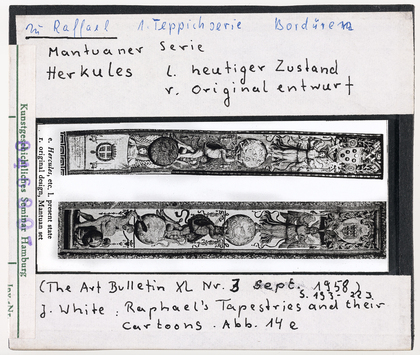 zu Raffael 1. Teppichserie Bordüren
Mantuaner Serie
Herkules l. heutiger Zustand
r. Original entwurf
e. Hercules, etc. l. present state
r. original design, Mantuan set
Kunstgeschichtliches Seminar Hamburg
Inv.-Nr.
(The Art Bulletin XL Nr. 3 sept. 1958)
S. 193-223
J. White: Raphael's Tapestries and their
Cartoons. Abb. 14 e